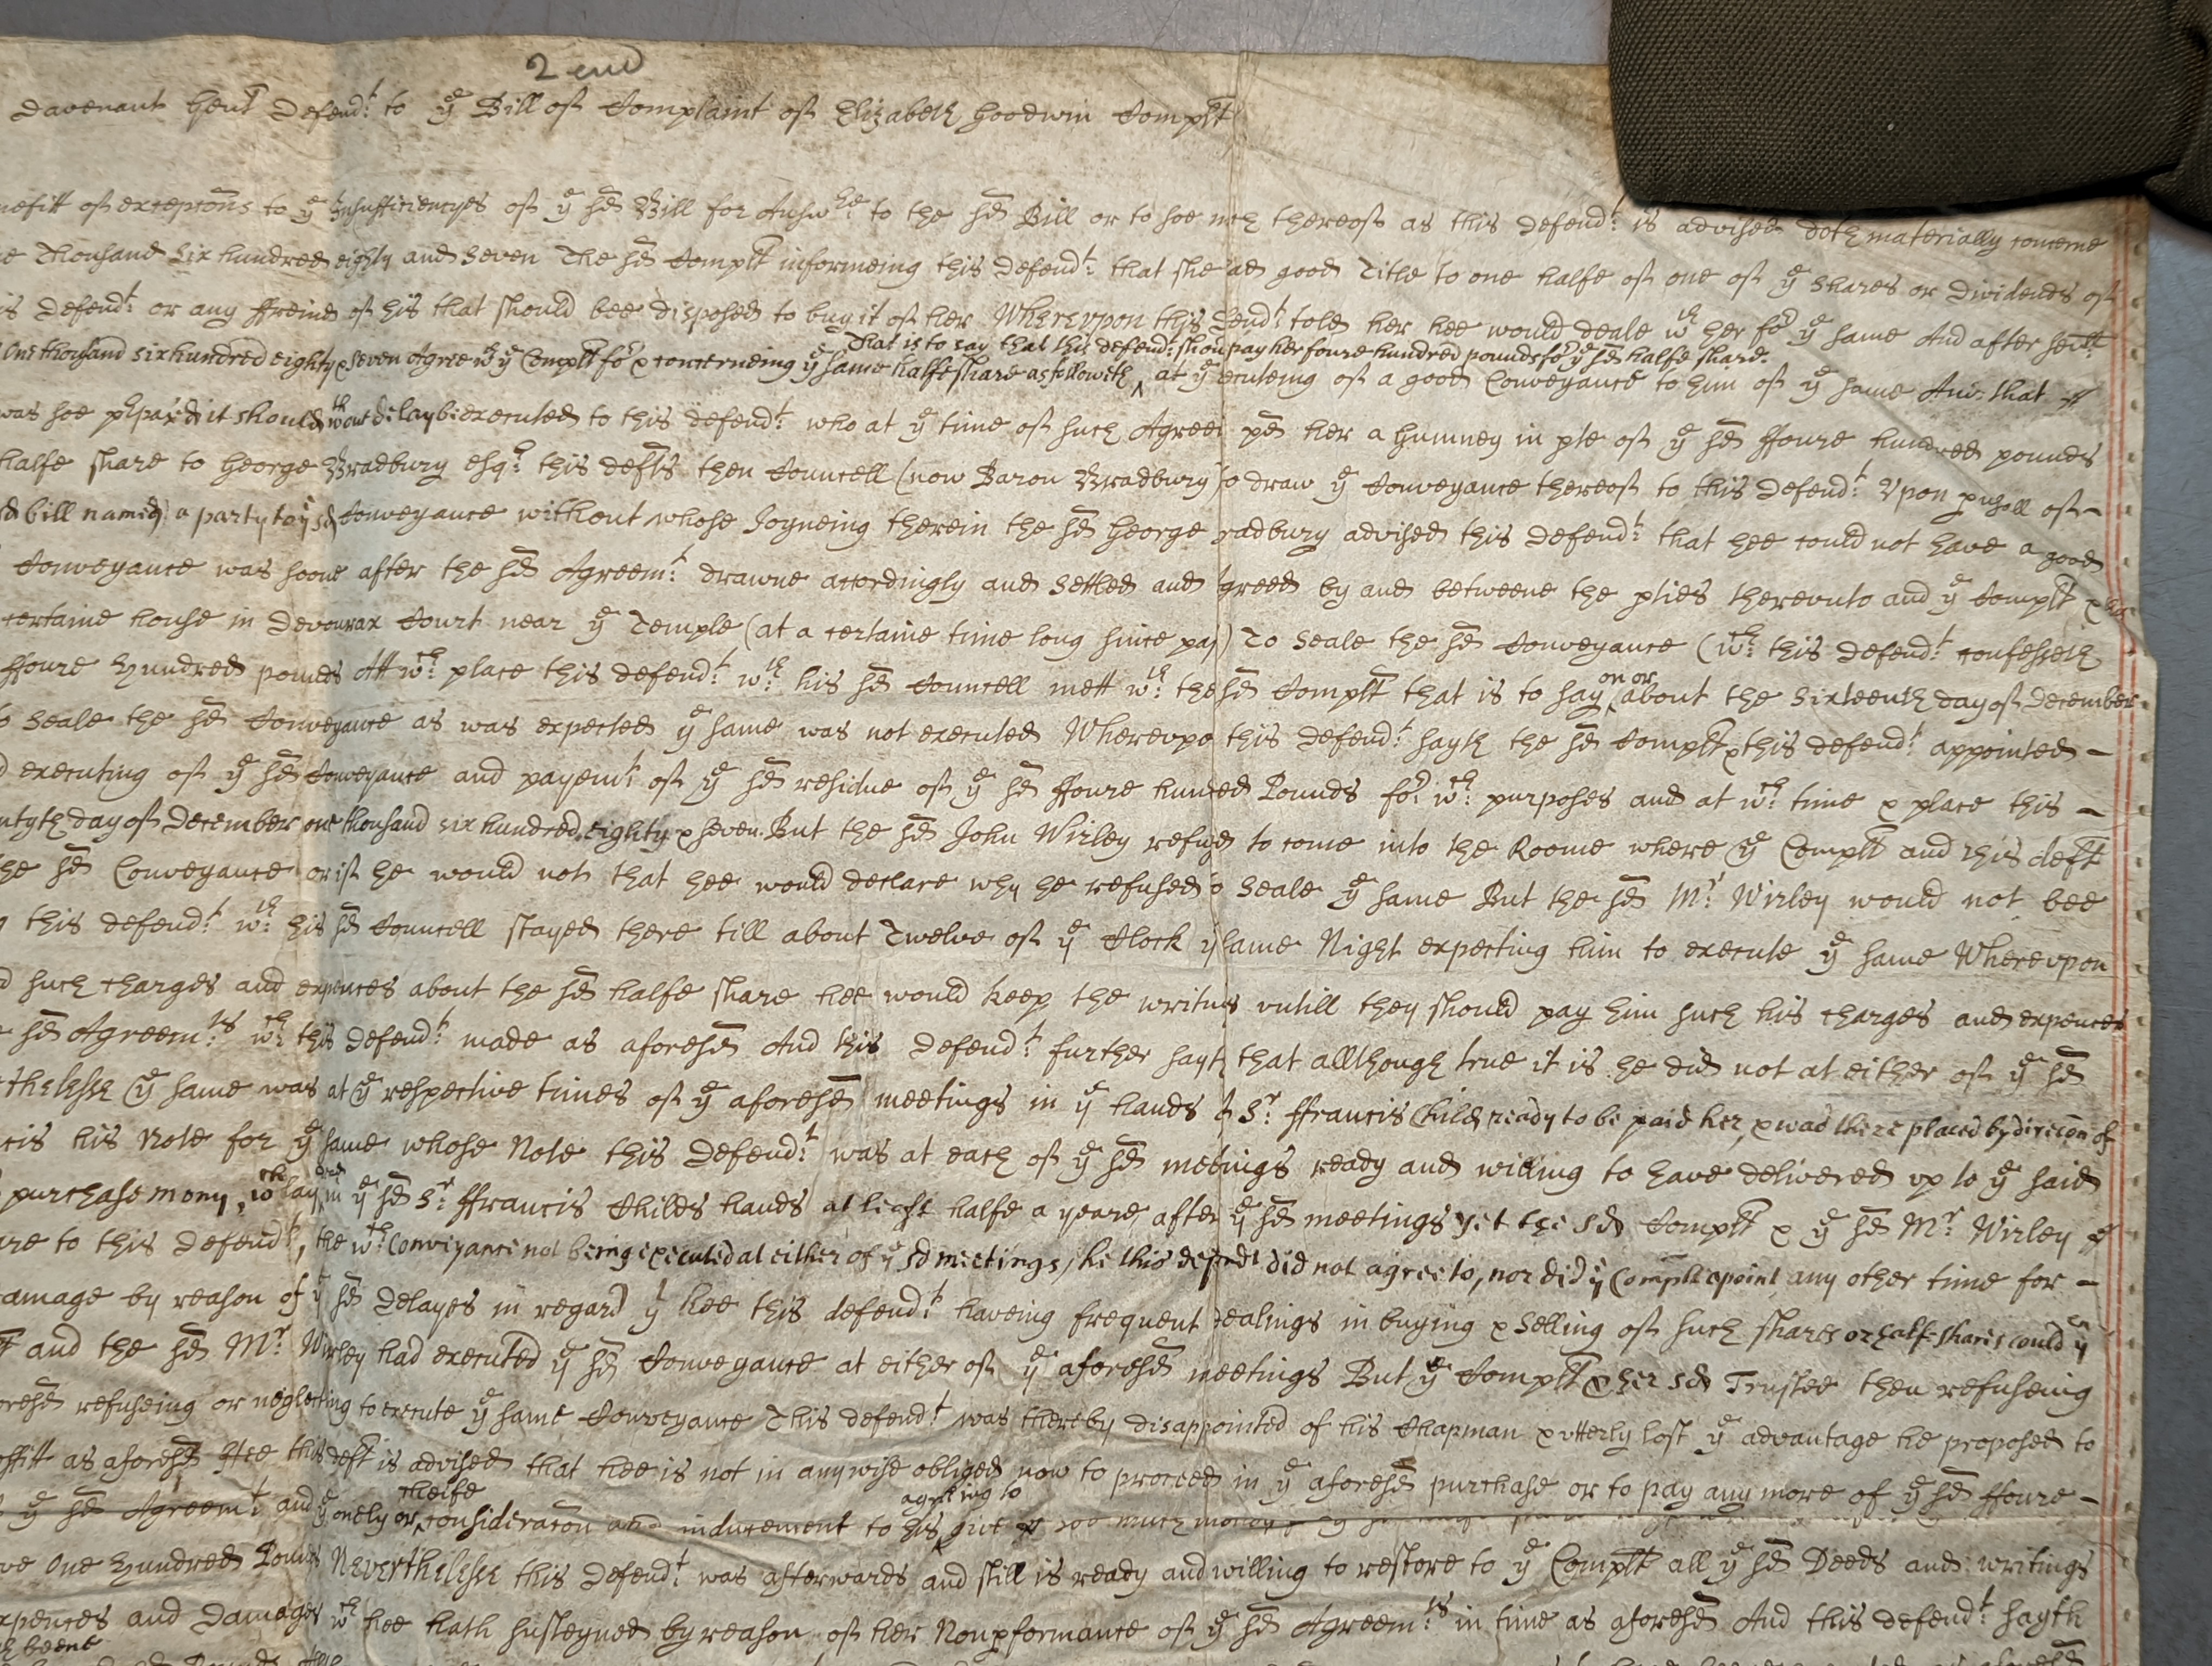 2 end
Davenant Gent Defend.t to ye Bill of Complaint of Elizabeth Goodwin Complt
nefitt of exceptons to ye Insufficiencyes of ye sd Bill for Answere to the sd Bill or to soe mch thereof as this defend.t is advised doth materially concerne
ne Thousand Six hundred eighty and Seven The sd Complt informeing this Defend.t that she had good Title to one halfe of one of ye Shares or Dividends of
is Defend.t or any ffreind of his that should bee disposed to buy it of her Wherevpon this Defend.t told her hee would deale wth her for ye same And after
That is to say that this defend.t should pay her foure hundred pounds for ye sd halfe share
One thousand six hundred eighty & seven Agree wth ye Complt for & concerneing ye same halfe share as followeth ^ at ye executeing of a good Conveyance to him of ye same And that
was soe it should wthout delay bee executed to this defend.t who at ye time of such Agreemt pd her a Guinney in pte of ye sd ffoure hundred pounds
halfe share to George Bradbury esqr. this defts then Councell (now Baron Bradbury) to draw ye Conveyance thereof to this Defend.t Vpon pusall of
sd bill named) a party to ye sd Conveyance without whose Joyneing therein the sd George Bradbury advised this Defend.t that hee could not have a good
Conveyance was soone after the sd Agreem.t drawne accordingly and Settled and Agreed by and betweene the pties therevnto and ye Complt
certaine house in Devourax Court near ye Temple (at a certaine time long since past) To Seale the sd Conveyance (wch this Defend.t confesseth
on or
ffoure Hundred pounds Att wch place this defend.t wth his sd Councell mett wth the sd Complt that is to say ^ about the Sixteenth day of December
o Seale the sd Conveyance as was expected ye same was not executed Wherevpon this Defend.t sayth the sd Complt & this defend.t appointed
d executing of ye sd Conveyance and payem.t of ye sd residue of ye sd ffoure hundred Pounds for wch purposes and at wch time & place this
ntyth day of December one thousand six hundred eighty & seven But the sd John Wirley refused to come into the Roome where ye Complt and this deft
he sd Conveyance or if he would not that hee would declare why he refused to Seale ye same But the sd Mr Wirley would not bee
g this defend.t wth his sd Councell stayed there till about Twelve of ye Clock ye same Night expecting him to execute ye same Wherevpon
d such charges and expences about the sd halfe share hee would keep the writings vntill they should pay him such his charges and expences
e sd Agreem.ts wth this Defend.t made as aforesd And this Defend.t further sayth that allthough true it is he did not at either of ye sd
thelesse ye same was at ye respective times of ye aforesd meetings in ye hands of Sr. ffrancis Child ready to be paid her, & was there placed by direccon of
cis his Note for ye same whose Note this Defend.t was at each of ye sd meetings ready and willing to have delivered vp to ye said
purchase mony, wch lay in ye sd Sr. ffrancis Childs hands at least halfe a yeare after ye sd meetings yet the sd Complt & ye sd Mr Wirley
are to this Defend.t, the wch Conveyance not being executed at either of ye sd meetings, he this defendt did not agree to, nor did ye Complt apoint any other time for
amage by reason of ye sd Delayes in regard yt hee this defend.t haveing frequent dealings in buying & Selling of such shares or half-shares could
and the sd Mr Wirley had executed ye sd Conveyance at either of ye aforesd meetings But ye Complt & her sd Trustee then refuseing
oresd refuseing or neglecting to execute ye same Conveyance This defend.t was thereby disappointed of his Chapman & vtterly lost ye advantage he proposed to
offitt as aforesd Hee this deft is advised that hee is not in anywise obliged now to proceed in ye aforesd purchase or to pay any more of ye sd ffoure
cheife
agreeing to
ye sd Agreem.t and ye onely or ^ consideracon and inducement to his ^ give soe much money
ve One Hundred Pounds Neverthelesse this Defend.t was afterwards and still is ready and willing to restore to ye Complt all ye sd Deeds and writings
xpences and Damages wch hee hath susteyned by reason of her Nonpformance of ye sd Agreem.ts in time as aforesd And this defend.t sayth